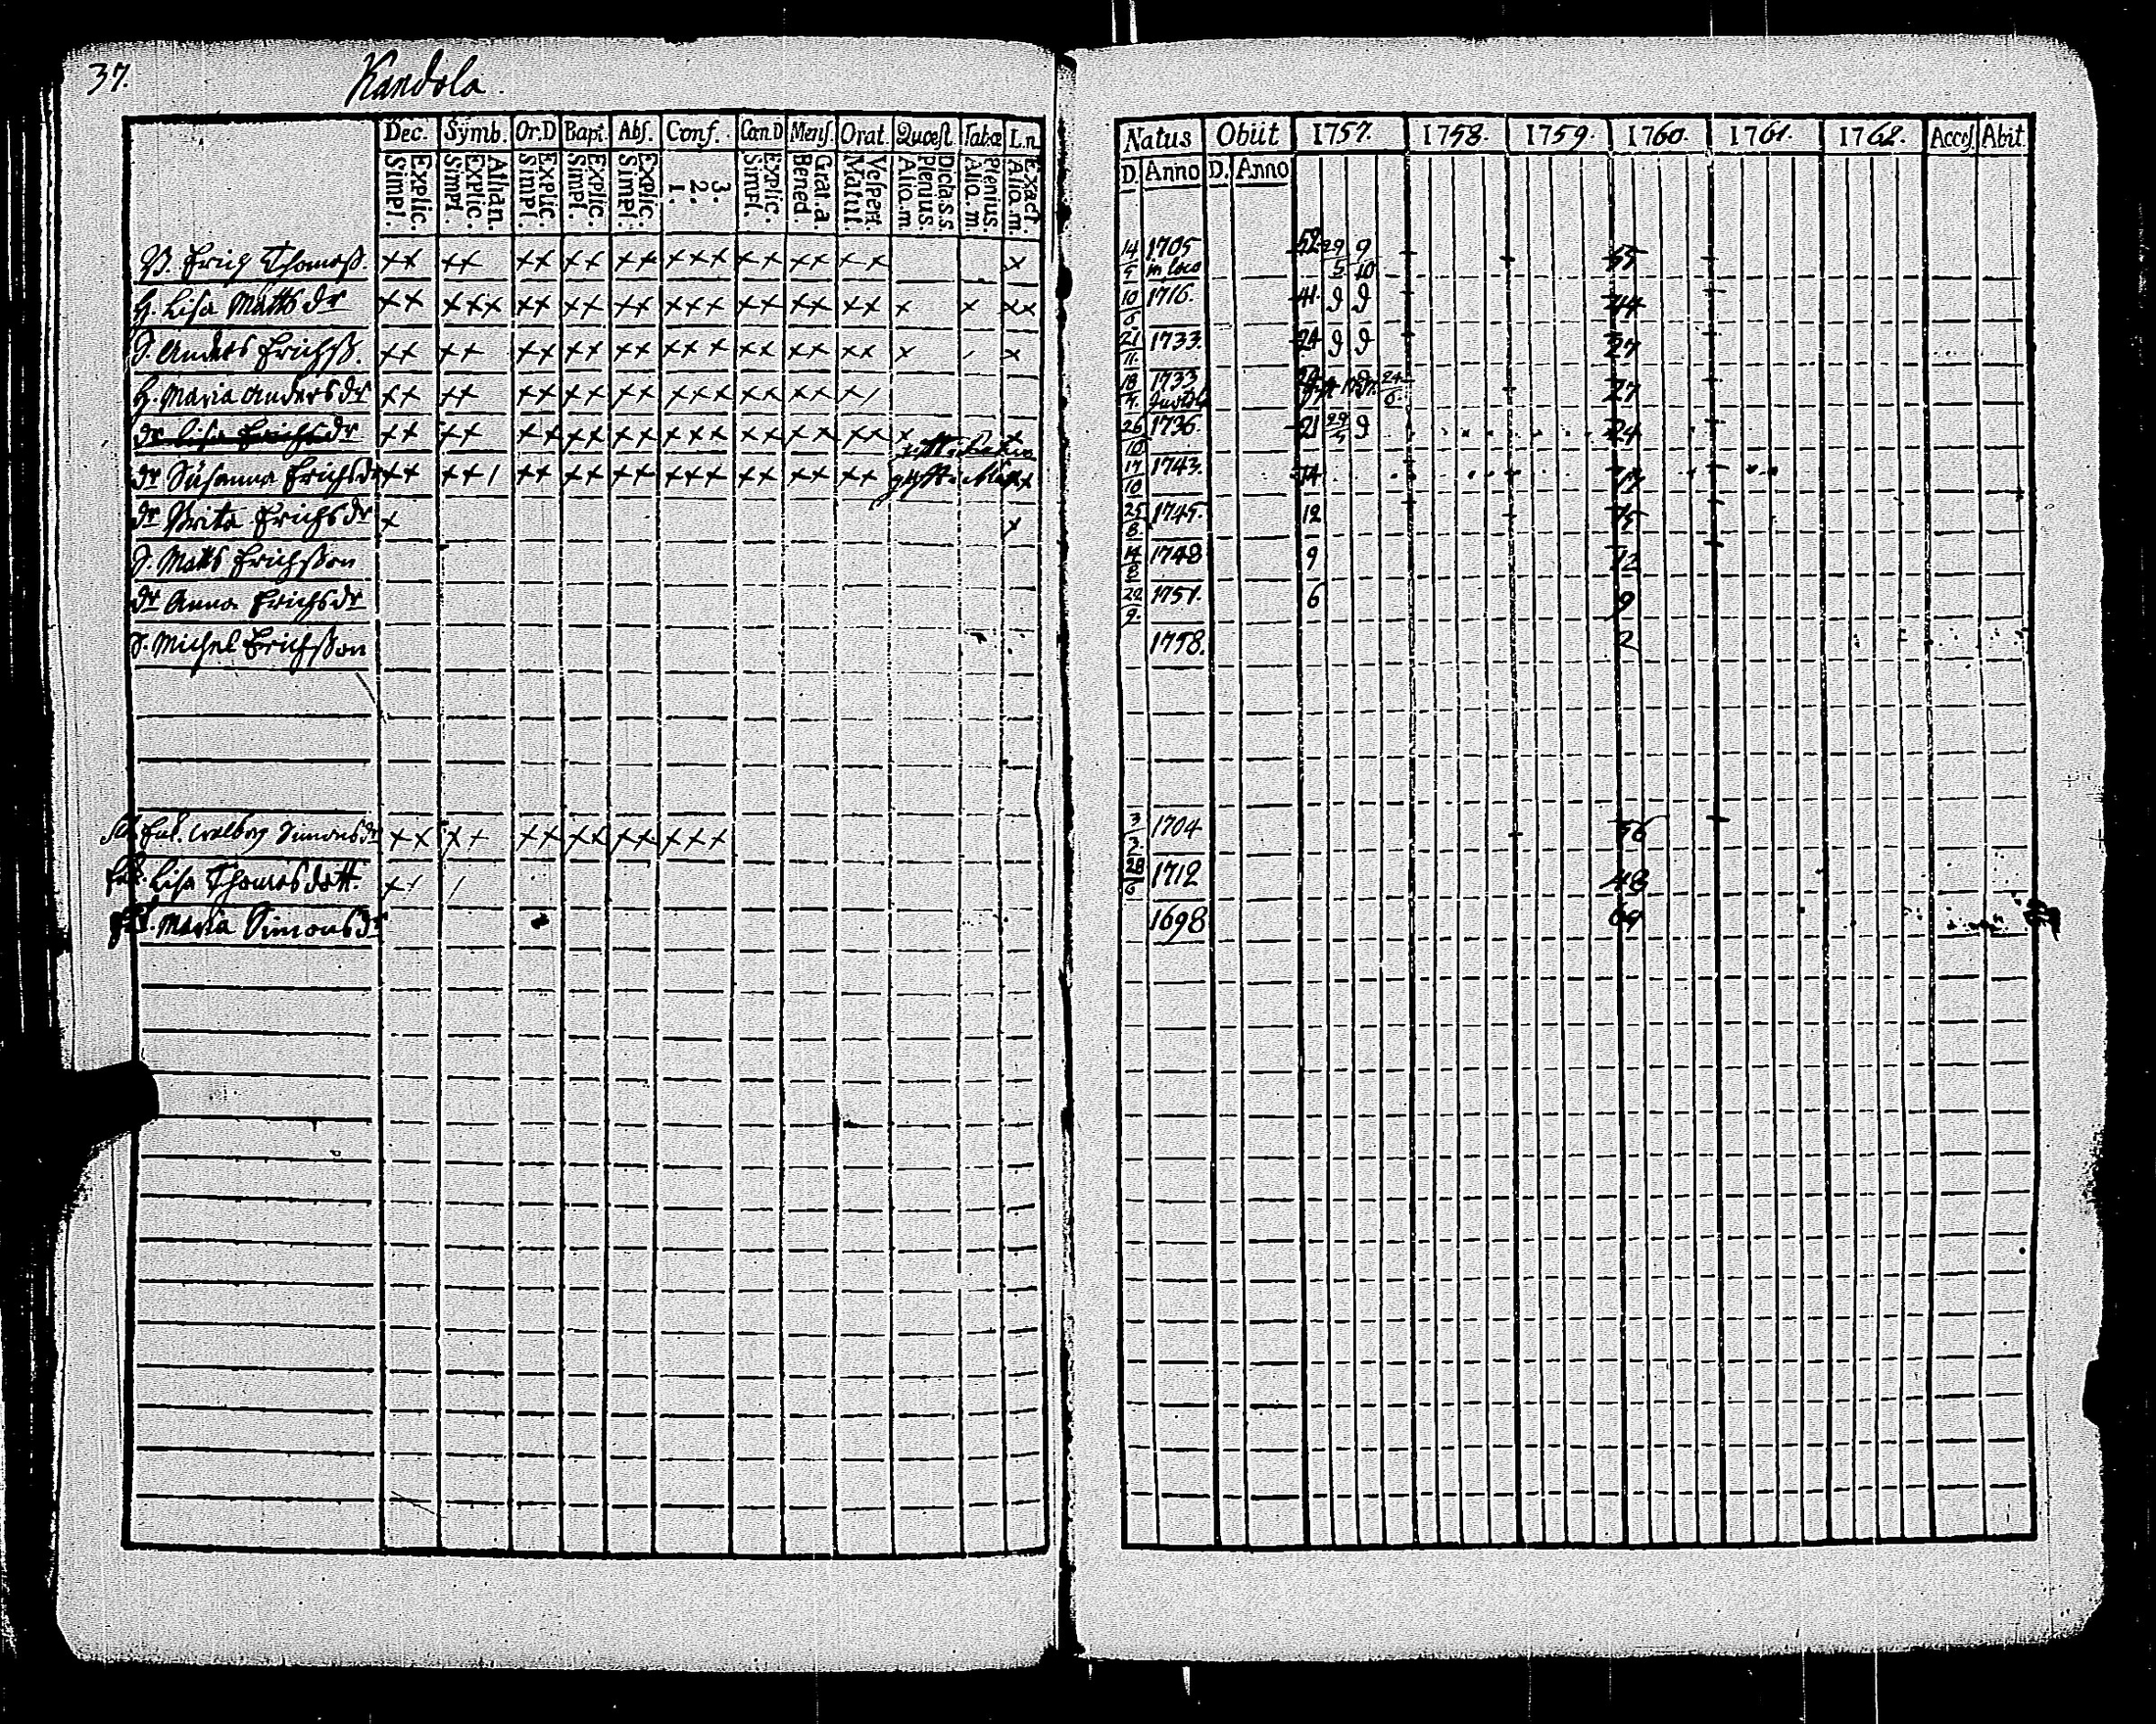 37. Kandola.
Dec. Symb. Or.D Bapt. Abs. Conf. Can.D Mens. Orat. Quæst. Tabæ L.n
Simpl. Explic. Simpl. Explic. Athan. Simpl. Explic. Simpl. Explic. Simpl. Explic. 1. 2. 3. Simpl. Explic. Bened. Grat. a. Matut. Vespert. Aliq. m. Plenius. Dicta. s. s. Aliq. m. Plenius. Aliq. m. Exact.
Natus Obiit 1757. 1758. 1759. 1760. 1761. 1762. Access. Abit
D. Anno D. Anno
B. Erich Thomass. ×× ×× ×× ×× ×× ××× ×× ×× ×× × 14/5 1705 in loco 52 29/5 9/10 55
H. Lisa Matts dr ×× ××× ×× ×× ×× ××× ×× ×× ×× × × ×× 10/6 1716. 41. 44
S. Anders Erichss. ×× ×× ×× ×× ×× ××× ×× ×× ×× × × 21/11. 1733. 24 27
H. Maria Anders dr ×× ×× ×× ×× ×× ××× ×× ×× ×/ 18/7. 1733 24/6. 27
dr Lisa Erichs dr ×× ×× ×× ×× ×× ××× ×× ×× ×× × × 26/10 1736. 21 24
dr Susanna Erichsdr ×× ××/ ×× ×× ×× ××× ×× ×× ×× ×× 17/10 1743. 14 17
dr Brita Erichs dr × × 25/8. 1745. 12 15
S. Matts Erichsson 14/8 1748 9 12
dr Anna Erichs dr 22/9. 1751. 6 9
S. Michel Erichsson 1758. 2
Enk. Walborg Simonsdr ×× ×× ×× ×× ×× ××× 3/3. 1704 56
Lisa Thomas dott. ×/ / 28/6 1712 48
Maria Simons dr 1698